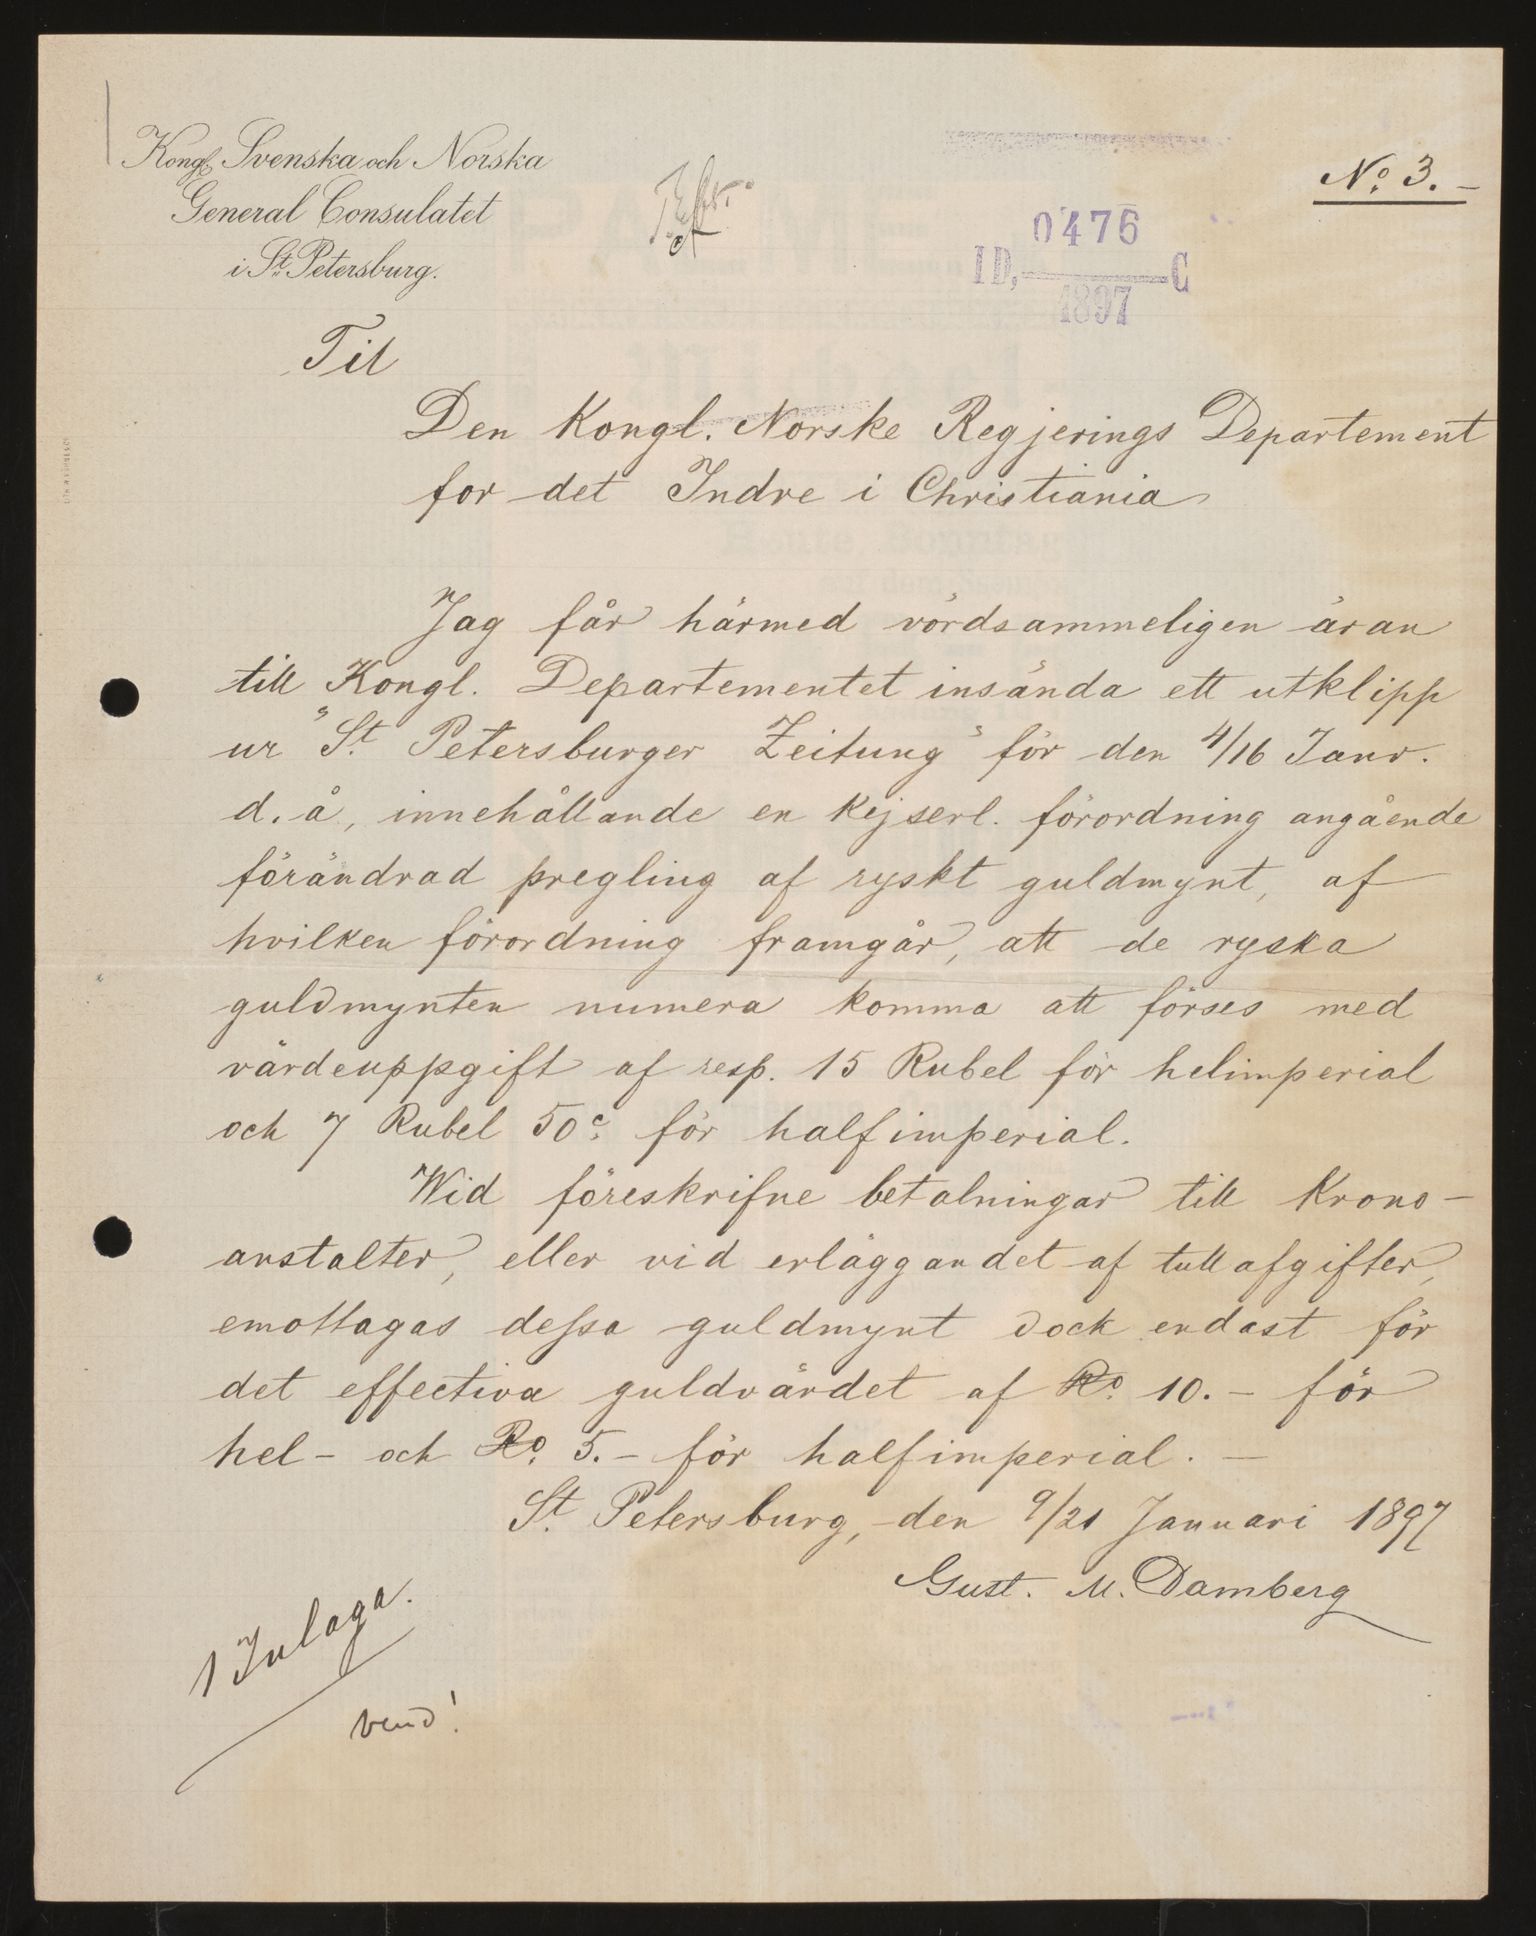 Kongl. Svenska och Norska
General Consulatet
i St. Petersburg.
No. 3. –
0476
ID, C
1897
Til
Den Kongl. Norske Regjerings Departement
for det Indre i Christiania
Jag får härmed vördsammeligen äran
till Kongl. Departementet insända ett utklipp
ur "St. Petersburger Zeitung" för den 4/16 Janr.
d. å, innehållande en kejserl. förordning angående
förändrad pregling af ryskt guldmynt, af
hvilken förordning framgår, att de ryska
guldmynten numera komma att förses med
värdeuppgift af resp. 15 Rubel för helimperial
och 7 Rubel 50 c. för halfimperial.
Wid föreskrifne betalningar till Krono-
anstalter, eller vid erläggandet af tullafgifter,
emottagas dessa guldmynt dock endast för
det effectiva guldvärdet af Ro. 10. – för
hel- och Ro. 5. – för halfimperial. –
St. Petersburg, den 9/21 Januari 1897
Gust. M. Damberg
1 Inlaga.
vend!